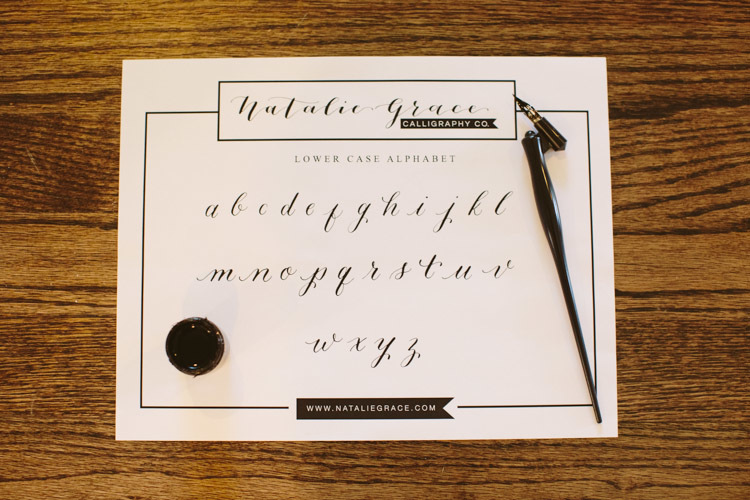 Natalie Grace
CALLIGRAPHY CO.
LOWER CASE ALPHABET
a b c d e f g h i j k l
m n o p q r s t u v
w x y z
WWW.NATALIEGRACE.COM